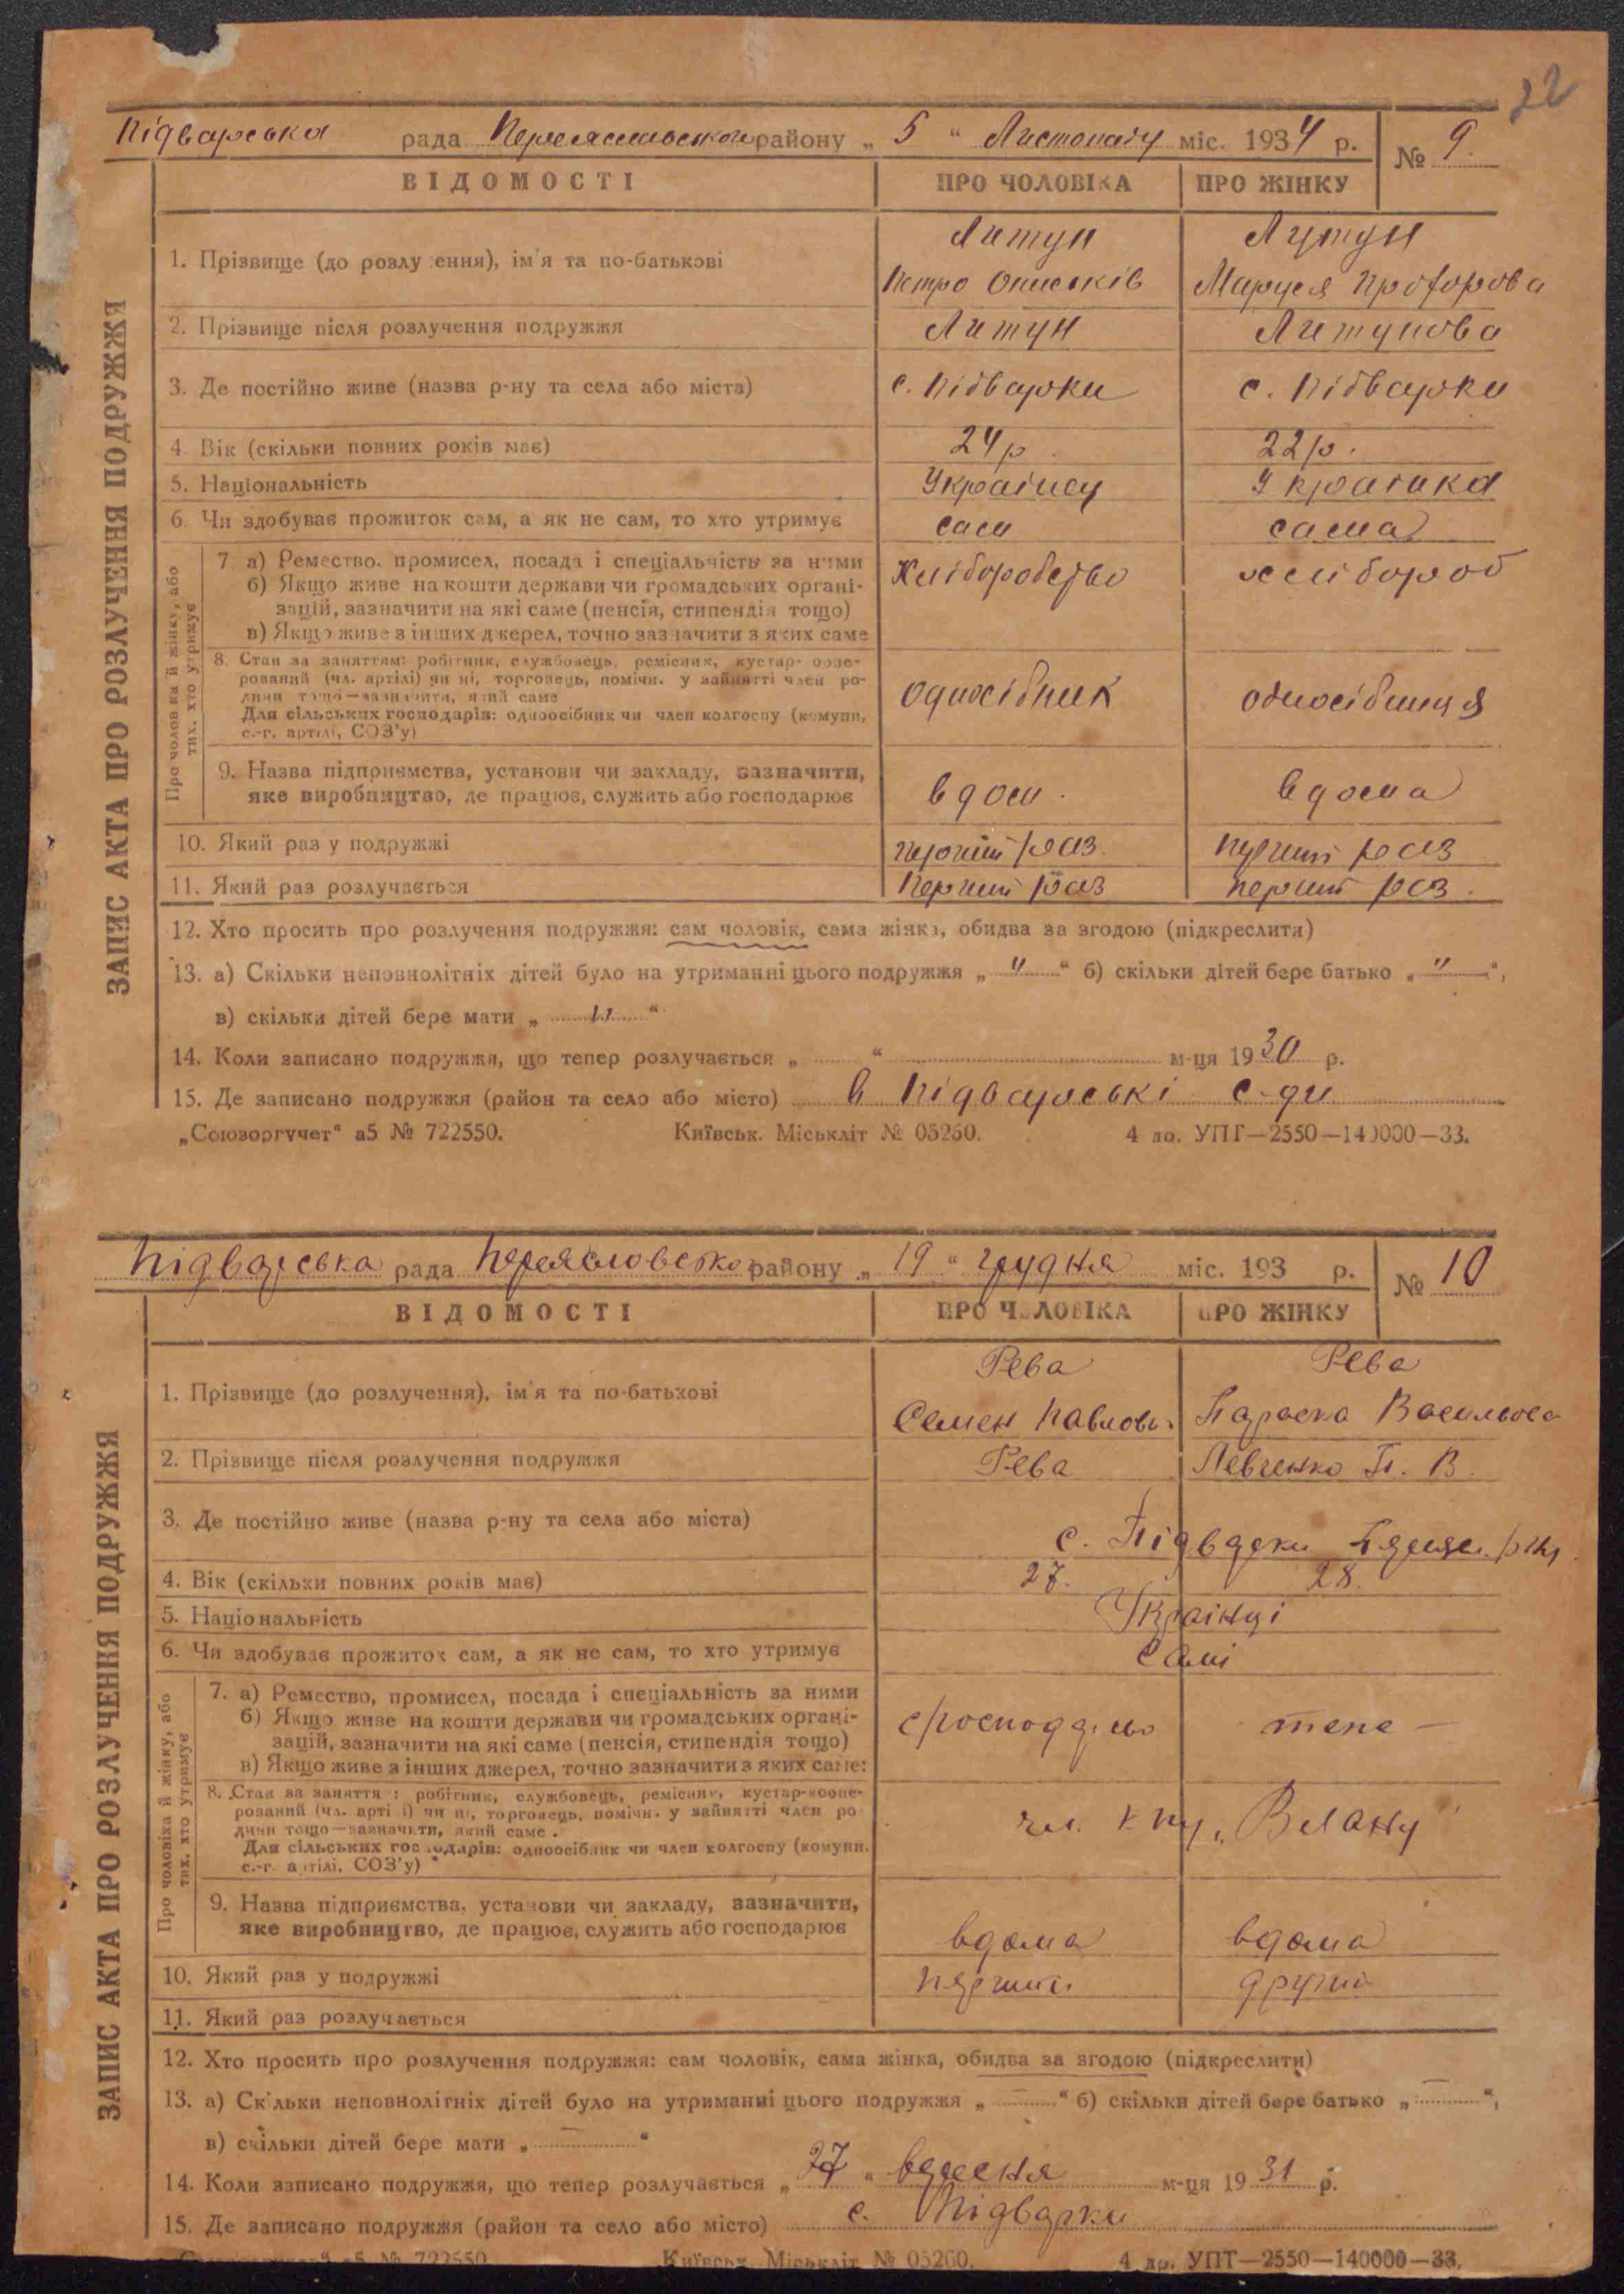 22
Підварська рада Переяславськой району „ 5 “ Листопаду міс. 1934 р. № 9
ВІДОМОСТІ ПРО ЧОЛОВІКА ПРО ЖІНКУ
ЗАПИС АКТА ПРО РОЗЛУЧЕННЯ ПОДРУЖЖЯ
1. Прізвище (до розлу ення), ім'я та по-батькові
Литун
Петро Описьків
Лутун
Маруся Профорова
2. Прізвище після розлучення подружжя Литун Литунова
3. Де постійно живе (назва р-ну та села або міста) с. Підварки с. Підварки
4. Вік (скільки повних років має) 24 р 22 р.
5. Національність Українец Украінка
6. Чи здобуває прожиток сам, а як не сам, то хто утримує сам сама
Про чоловіка й жінку, або
тих, хто утримує
7. а) Ремество, промисел, посада і спеціальність за ними
б) Якщо живе на кошти держави чи громадських органі-
зацій, зазначити на які саме (пенсія, стипендія тощо)
в) Якщо живе з інших джерел, точно зазначити з яких саме
Хліборобство хлібороб
8. Стан за заняттям: робітник, службовець, ремісник, кустар-коопе-
рований (чл. артілі) чи ні, торговець, помічн. у зайнятті член ро-
дини тощо—зазначити, який саме
Для сільських господарів: одноосібник чи член колгоспу (комуни,
с.-г. артілі, СОЗ'у)
односібник односібниця
9. Назва підприємства, установи чи закладу, зазначити,
яке виробництво, де працює, служить або господарює
вдом. вдома
10. Який раз у подружжі перший раз перший раз
11. Який раз розлучається Перший раз перший раз.
12. Хто просить про розлучення подружжя: сам чоловік, сама жінка, обидва за згодою (підкреслити)
13. а) Скільки неповнолітніх дітей було на утриманні цього подружжя „ " “ б) скільки дітей бере батько „ " “,
в) скільки дітей бере мати „ " “
14. Коли записано подружжя, що тепер розлучається „ “ м-ця 1930 р.
15. Де записано подружжя (район та село або місто) в Підварські с-ди
„Союзоргучет“ а5 № 722550. Київськ. Міськліт № 05260. 4 до. УПТ—2550—140000—33.
Підварська рада Переясловсько району „ 19 “ грудня міс. 193 р. № 10
ВІДОМОСТІ ПРО ЧОЛОВІКА ПРО ЖІНКУ
ЗАПИС АКТА ПРО РОЗЛУЧЕННЯ ПОДРУЖЖЯ
1. Прізвище (до розлучення), ім'я та по-батькові
Рева
Семен Павлов.
Рева
Параска Васильова
2. Прізвище після розлучення подружжя Рева Левченко П. В.
3. Де постійно живе (назва р-ну та села або міста) с. Підварки
4. Вік (скільки повних років має) 27. 28.
5. Національність Українці
6. Чи здобуває прожиток сам, а як не сам, то хто утримує Самі
Про чоловіка й жінку, або
тих, хто утримує
7. а) Ремество, промисел, посада і спеціальність за ними
б) Якщо живе на кошти держави чи громадських органі-
зацій, зазначити на які саме (пенсія, стипендія тощо)
в) Якщо живе з інших джерел, точно зазначити з яких саме:
8. Стан за заняття : робітник, службовець, ремісник, кустар-коопе-
рований (чл. артілі) чи ні, торговець, помічн. у зайнятті член ро
дини тощо—зазначити, який саме.
Для сільських господарів: одноосібник чи член колгоспу (комуни.
с.-г. артілі, СОЗ'у)
чл.
9. Назва підприємства, установи чи закладу, зазначити,
яке виробництво, де працює, служить або господарює
вдома вдома
10. Який раз у подружжі перший другий
11. Який раз розлучається
12. Хто просить про розлучення подружжя: сам чоловік, сама жінка, обидва за згодою (підкреслити)
13. а) Скільки неповнолітніх дітей було на утриманні цього подружжя „ — “ б) скільки дітей бере батько „ — “,
в) скільки дітей бере мати „ — “
14. Коли записано подружжя, що тепер розлучається „ 27 “ вересня м-ця 1931 р.
15. Де записано подружжя (район та село або місто) с. Підварки
а5 № 722550 Київськ. Міськліт № 05260. 4 др. УПТ—2550—140000—33.